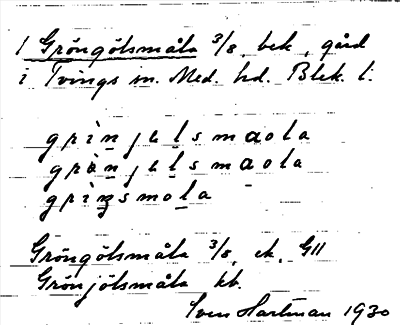 1 Gröngölsmåla 3/8, bek, gård
i Tvings sn. Med. hd. Blek. l.
grìnjelsmaola
grànjelsmaola
grìŋsmola
Gröngölsmåla 3/8, ek, GII
Grönjölsmåla kb.
Sven Hartman 1930